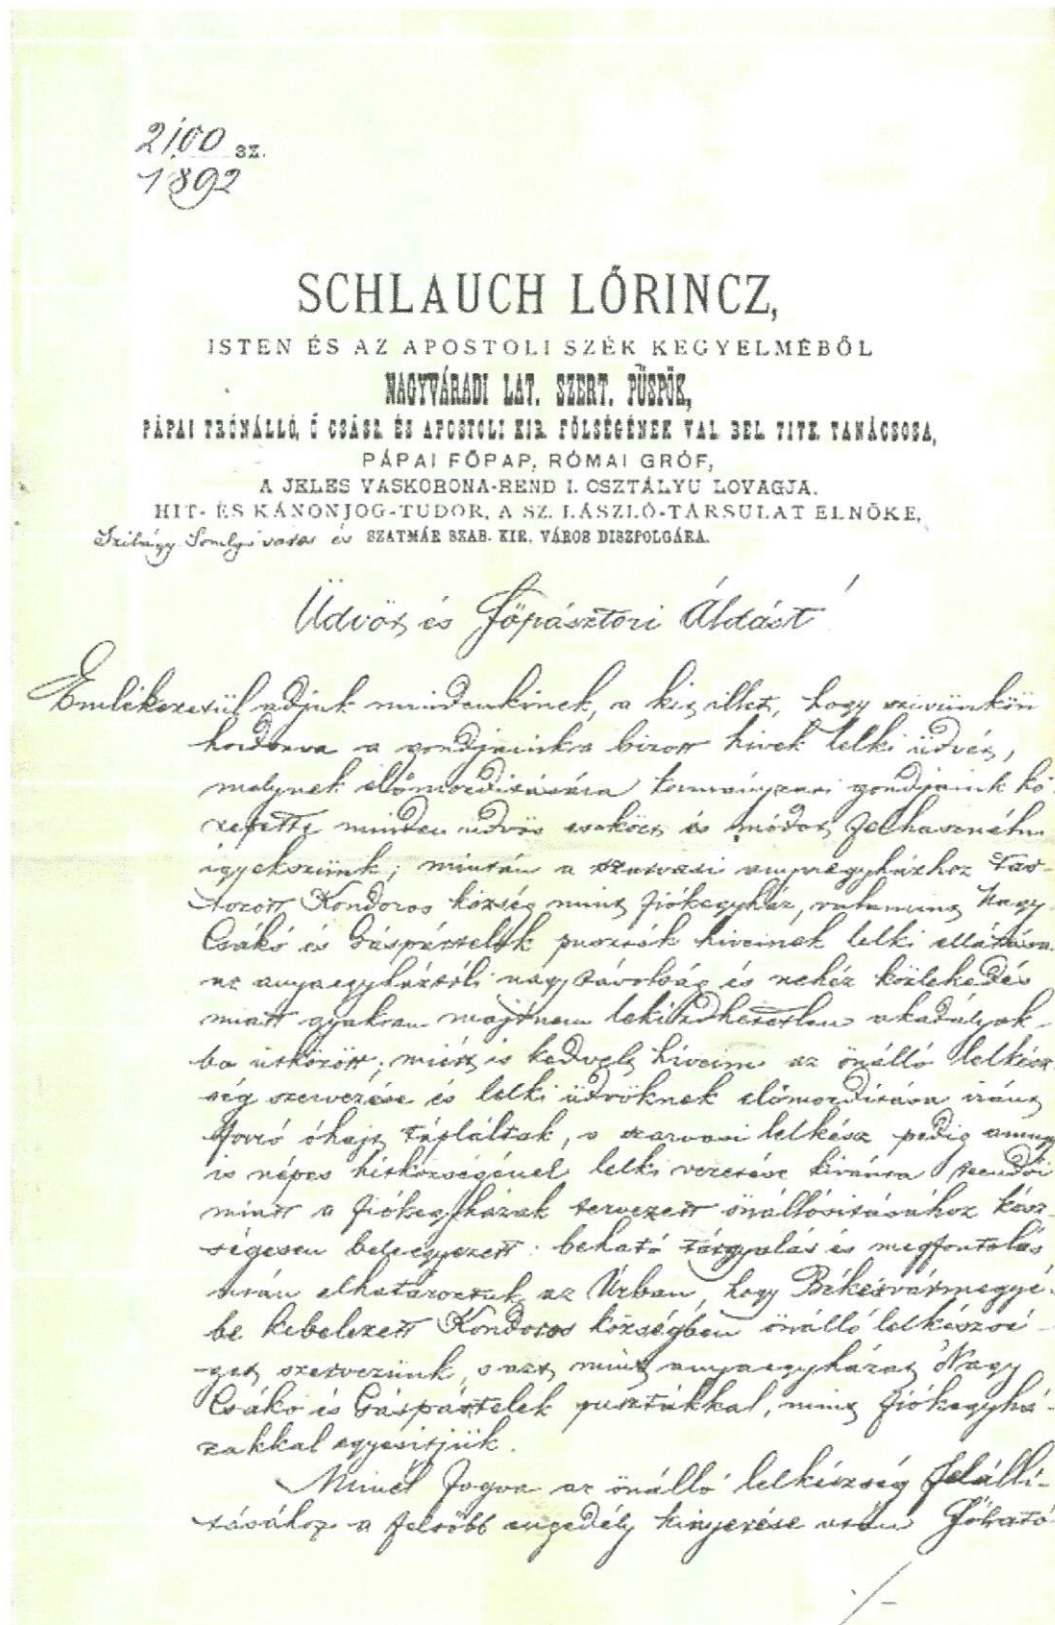 2100 SZ.
1892
SCHLAUCH LŐRINCZ,
ISTEN ÉS AZ APOSTOLI SZÉK KEGYELMÉBŐL
NAGYVÁRADI LAT. SZERT. PÜSPÖK,
PÁPAI TRÓNÁLLÓ, Ő CSÁSZ. ÉS APOSTOLI KIR. FÖLSÉGÉNEK VAL. BEL. TITK. TANÁCSOSA,
PÁPAI FŐPAP, RÓMAI GRÓF,
A JELES VASKORONA-REND I. OSZTÁLYU LOVAGJA.
HIT- ÉS KÁNONJOG-TUDOR, A SZ. LÁSZLÓ-TÁRSULAT ELNÖKE,
Szilágy Somlyó város és SZATMÁR SZAB. KIR. VÁROS DISZPOLGÁRA.
Üdvöt és Főpásztori Áldást
Emlékezetül adjuk mindenkinek, a kit illet, hogy szivünkön
hordozva a gondjainkra bizott hivek lelki üdvét,
melynek előmozditására kormányzati gondjaink kö-
zepette minden üdvös eszközt és módot felhasználni
igyekszünk; miután a szarvasi anyaegyházhoz tar-
tozott Kondoros község mint fiókegyház, valamint Nagy
Csákó és Gáspártelek puszták hiveinek lelki ellátása
az anyaegyháztóli nagy távolság és nehéz közlekedés
miatt gyakran majdnem leküzdhetetlen akadályok-
ba ütközött; miért is kedvelt híveim az önálló lelkész-
ség szervezése és lelki üdvöknek előmozditása iránt
forró óhajt tápláltak, a szarvasi lelkész pedig amugy
is népes hitközségével lelki vezetése kivánta teendői
miatt a fiókegyházak tervezett önállósitásához kész-
ségesen beleegyezett: beható tárgyalás és megfontolás
után elhatároztuk az Úrban, hogy Békésvármegyé-
be kebelezett Kondoros községben önálló lelkészsé-
get szervezünk, s azt mint anyaegyházat Nagy
Csákó és Gáspártelek pusztákkal, mint fiókegyhá-
zakkal egyesitjük.
Minél fogva az önálló lelkészség felálli-
tásához a felsőbb engedély kinyerése után Főható
./-